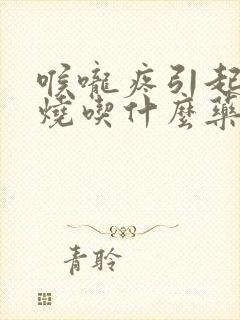 喉嚨疼引起
燒喫什麼藥
青聆